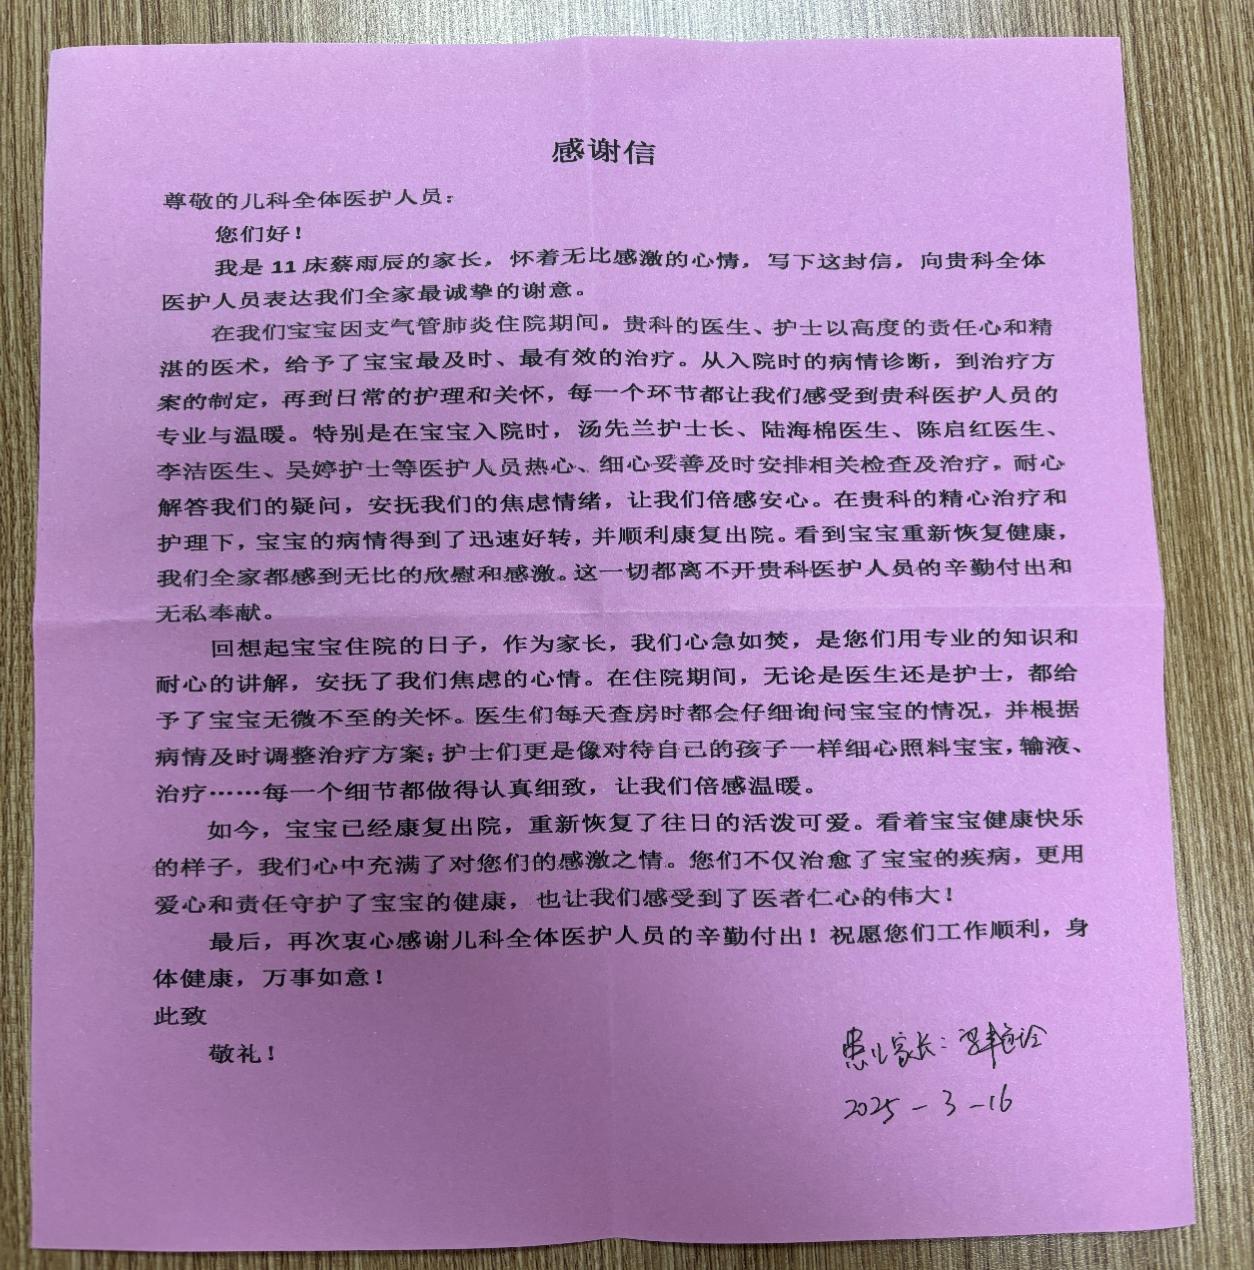 感谢信
尊敬的儿科全体医护人员：
您们好！
我是 11 床蔡雨辰的家长，怀着无比感激的心情，写下这封信，向贵科全体
医护人员表达我们全家最诚挚的谢意。
在我们宝宝因支气管肺炎住院期间，贵科的医生、护士以高度的责任心和精
湛的医术，给予了宝宝最及时、最有效的治疗。从入院时的病情诊断，到治疗方
案的制定，再到日常的护理和关怀，每一个环节都让我们感受到贵科医护人员的
专业与温暖。特别是在宝宝入院时，汤先兰护士长、陆海棉医生、陈启红医生、
李洁医生、吴婷护士等医护人员热心、细心妥善及时安排相关检查及治疗，耐心
解答我们的疑问，安抚我们的焦虑情绪，让我们倍感安心。在贵科的精心治疗和
护理下，宝宝的病情得到了迅速好转，并顺利康复出院。看到宝宝重新恢复健康，
我们全家都感到无比的欣慰和感激。这一切都离不开贵科医护人员的辛勤付出和
无私奉献。
回想起宝宝住院的日子，作为家长，我们心急如焚，是您们用专业的知识和
耐心的讲解，安抚了我们焦虑的心情。在住院期间，无论是医生还是护士，都给
予了宝宝无微不至的关怀。医生们每天查房时都会仔细询问宝宝的情况，并根据
病情及时调整治疗方案；护士们更是像对待自己的孩子一样细心照料宝宝，输液、
治疗……每一个细节都做得认真细致，让我们倍感温暖。
如今，宝宝已经康复出院，重新恢复了往日的活泼可爱。看着宝宝健康快乐
的样子，我们心中充满了对您们的感激之情。您们不仅治愈了宝宝的疾病，更用
爱心和责任守护了宝宝的健康，也让我们感受到了医者仁心的伟大！
最后，再次衷心感谢儿科全体医护人员的辛勤付出！祝愿您们工作顺利，身
体健康，万事如意！
此致
敬礼！
患儿家长：
2025-3-16